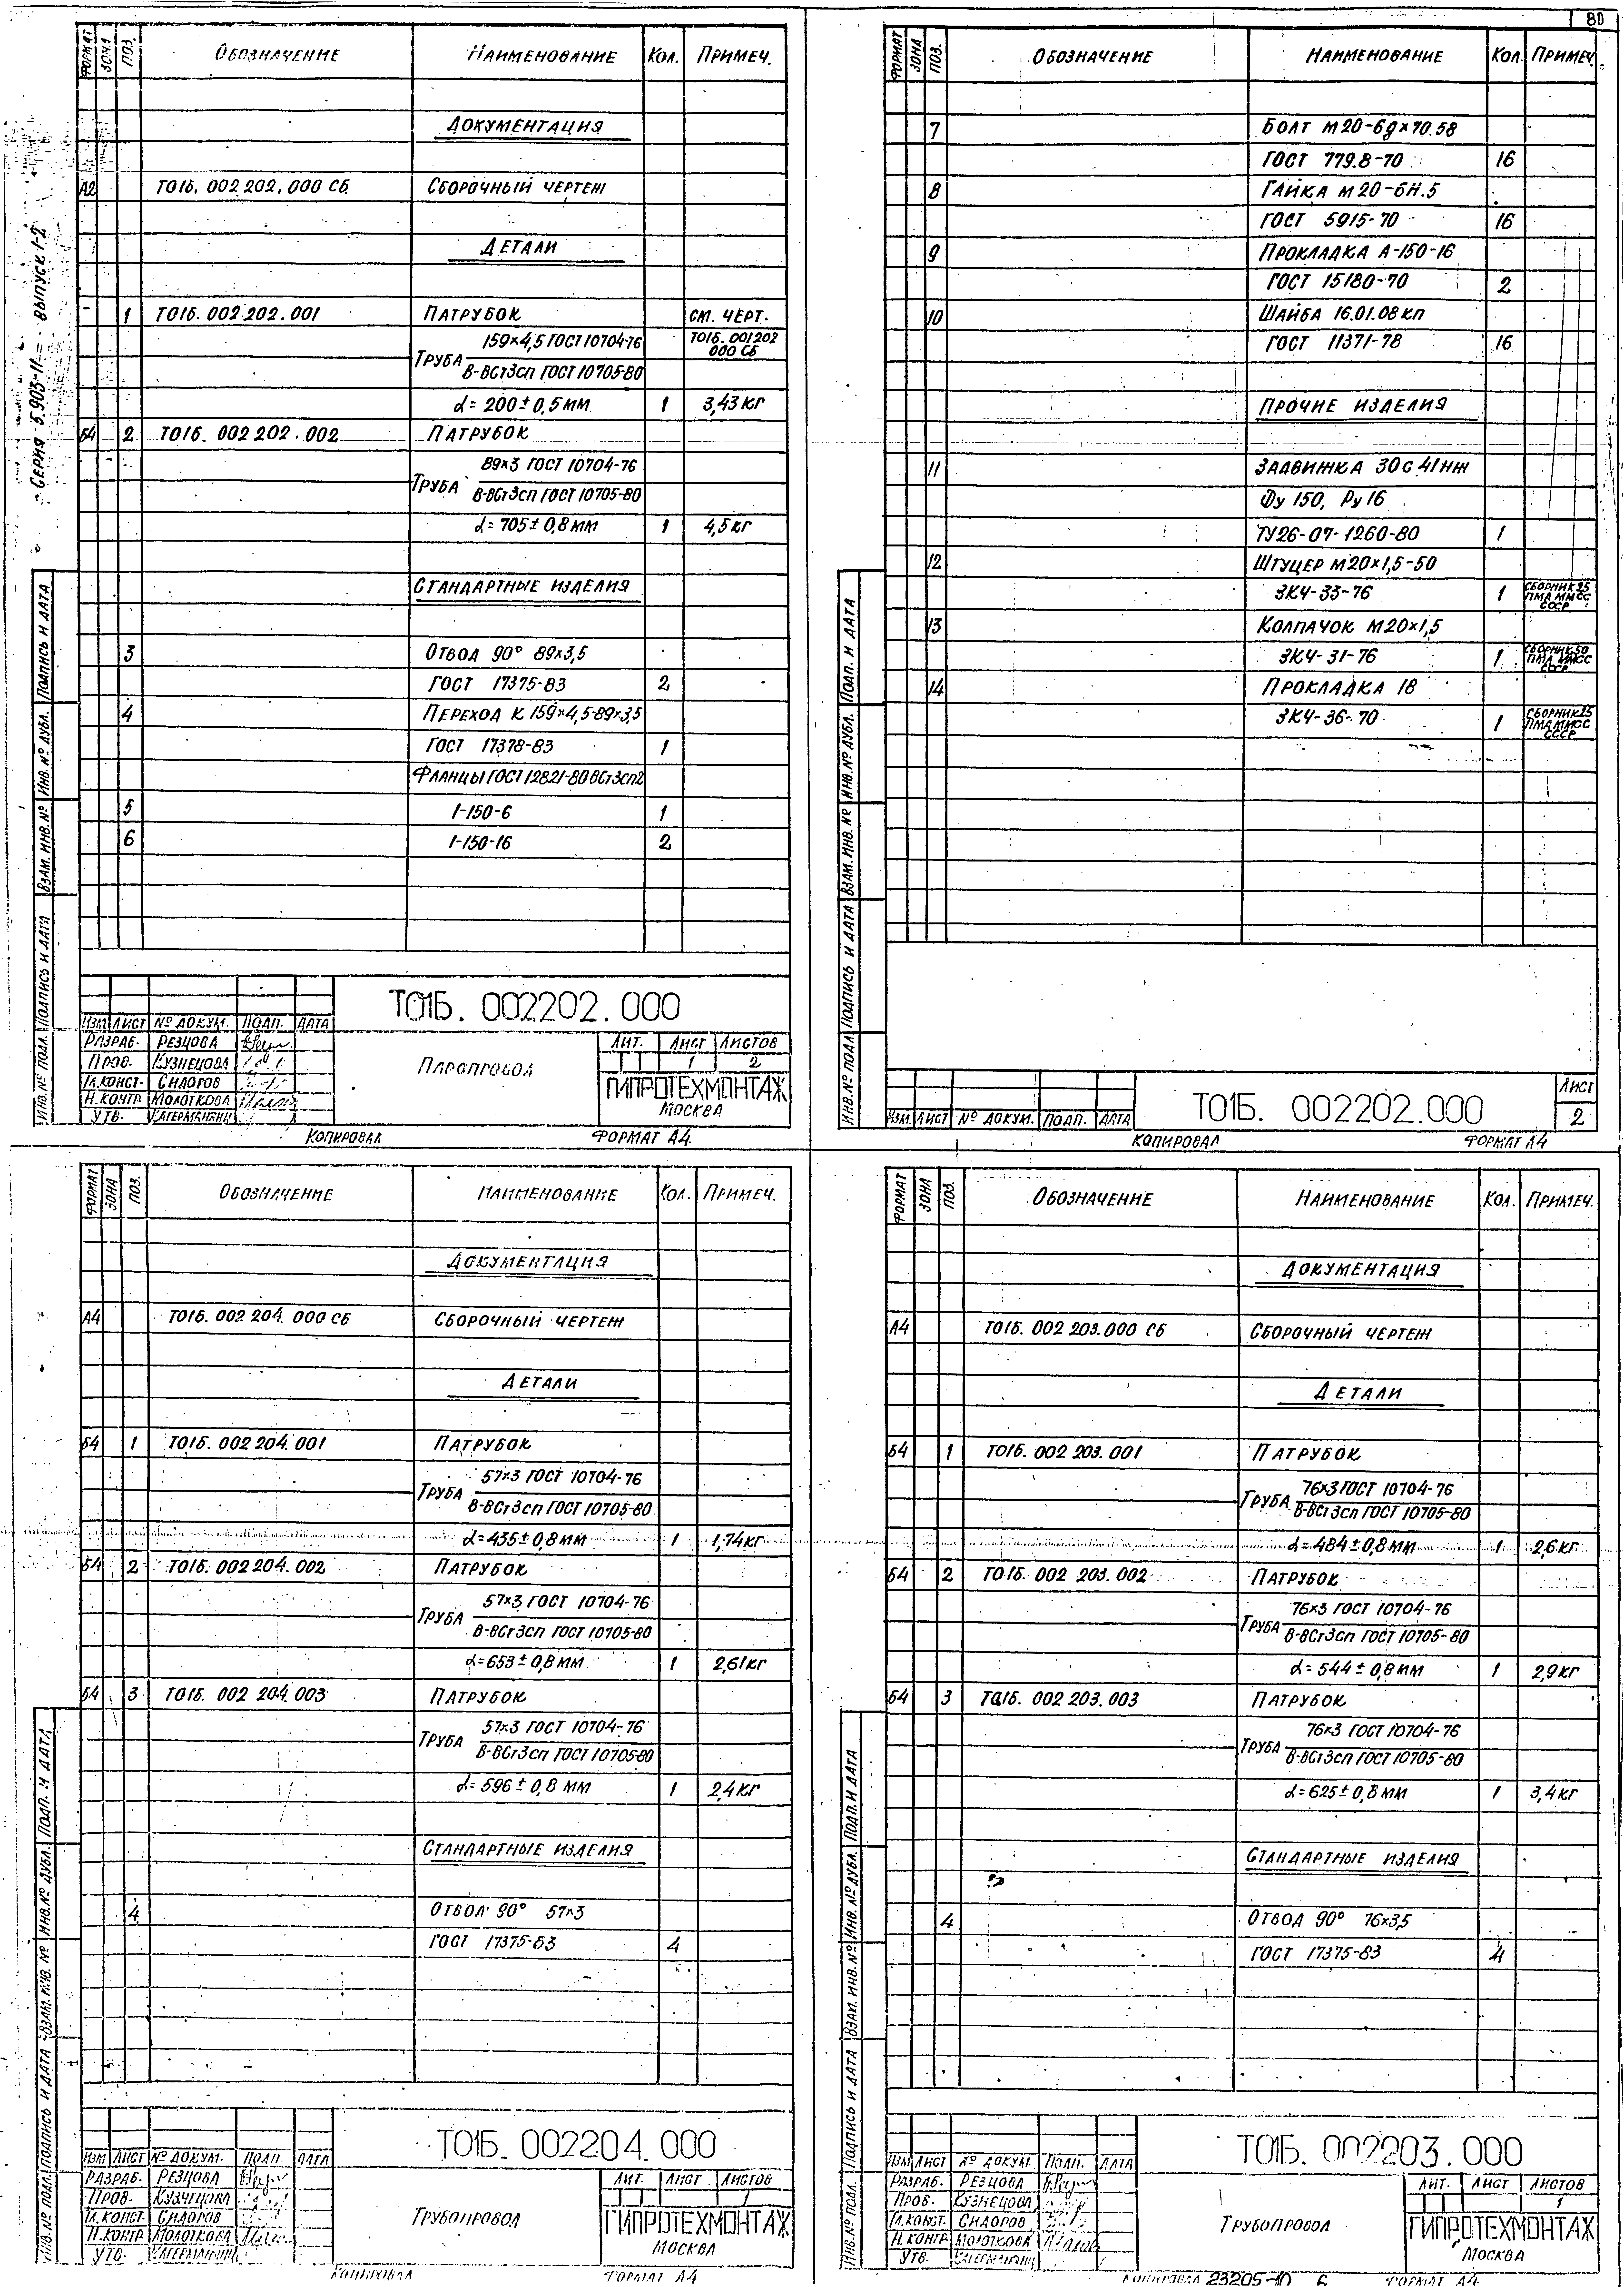 80
Серия 5.903-11 Выпуск 1-2
Формат Зона Поз. Обозначение Наименование Кол. Примеч.
Документация
А2 Т01Б. 002 202. 000 СБ Сборочный чертеж
Детали
1 Т01Б. 002 202. 001 Патрубок см. черт.
Труба 159×4,5 ГОСТ 10704-76 Т01Б. 001202
В-ВСт3сп ГОСТ 10705-80 000 СБ
ℓ= 200 ± 0,5 мм 1 3,43 кг
Б4 2 Т01Б. 002 202. 002 Патрубок
Труба 89×3 ГОСТ 10704-76
В-ВСт3сп ГОСТ 10705-80
ℓ= 705 ± 0,8 мм 1 4,5 кг
Стандартные изделия
3 Отвод 90° 89×3,5
ГОСТ 17375-83 2
4 Переход К 159×4,5-89×3,5
ГОСТ 17378-83 1
Фланцы ГОСТ 12821-80 ВСт3сп2
5 1-150-6 1
6 1-150-16 2
Инв. № подл. Подпись и дата Взам. инв. № Инв. № дубл. Подпись и дата
Т01Б. 002202. 000
Изм Лист № докум. Подп. Дата
Разраб. Резцова
Пров. Кузнецова
Гл. конст. Сидоров
Н. контр. Молоткова
Утв.
Паропровод
Лит. Лист Листов
1 2
ГИПРОТЕХМОНТАЖ
Москва
Копировал Формат А4
Формат Зона Поз. Обозначение Наименование Кол. Примеч.
7 Болт М20-6g×70.58
ГОСТ 779.8-70 16
8 Гайка М20-6Н.5
ГОСТ 5915-70 16
9 Прокладка А-150-16
ГОСТ 15180-70 2
10 Шайба 16.01.08кп
ГОСТ 11371-78 16
Прочие изделия
11 Задвижка 30с 41нж
Ду 150, Ру 16
ТУ26-07-1260-80 1
12 Штуцер М20×1,5-50
ЗК4-33-76 1 Сборник 25
ПМА ММСС
СССР
13 Колпачок М20×1,5
ЗК4-31-76 1 Сборник 50
ПМА ММСС
СССР
14 Прокладка 18
ЗК4-36-70 1 Сборник 25
ПМА ММСС
СССР
Инв. № подл. Подпись и дата Взам. инв. № Инв. № дубл. Подп. и дата
Изм. Лист № докум. Подп. Дата
Т01Б. 002202.000
Лист
2
Копировал Формат А4
Формат Зона Поз. Обозначение Наименование Кол. Примеч.
Документация
А4 Т01Б. 002 204. 000 СБ Сборочный чертеж
Детали
Б4 1 Т01Б. 002 204. 001 Патрубок
Труба 57×3 ГОСТ 10704-76
В-ВСт3сп ГОСТ 10705-80
ℓ= 435 ± 0,8 мм 1 1,74 кг
Б4 2 Т01Б. 002 204. 002 Патрубок
Труба 57×3 ГОСТ 10704-76
В-ВСт3сп ГОСТ 10705-80
ℓ= 653 ± 0,8 мм 1 2,61 кг
Б4 3 Т01Б. 002 204. 003 Патрубок
Труба 57×3 ГОСТ 10704-76
В-ВСт3сп ГОСТ 10705-80
ℓ= 596 ± 0,8 мм 1 2,4 кг
Стандартные изделия
4 Отвод 90° 57×3
ГОСТ 17375-83 4
Инв. № подл. Подпись и дата Взам. инв. № Инв. № дубл. Подп. и дата
Т01Б. 002204. 000
Изм Лист № докум. Подп. Дата
Разраб. Резцова
Пров. Кузнецова
Гл. конст. Сидоров
Н. контр. Молоткова
Утв.
Трубопровод
Лит. Лист Листов
1
ГИПРОТЕХМОНТАЖ
Москва
Копировал Формат А4
Формат Зона Поз. Обозначение Наименование Кол. Примеч.
Документация
А4 Т01Б. 002 203. 000 СБ Сборочный чертеж
Детали
Б4 1 Т01Б. 002 203. 001 Патрубок
Труба 76×3 ГОСТ 10704-76
В-ВСт3сп ГОСТ 10705-80
ℓ= 484 ± 0,8 мм 1 2,6 кг
Б4 2 Т01Б. 002 203. 002 Патрубок
Труба 76×3 ГОСТ 10704-76
В-ВСт3сп ГОСТ 10705-80
ℓ= 544 ± 0,8 мм 1 2,9 кг
Б4 3 Т01Б. 002 203. 003 Патрубок
Труба 76×3 ГОСТ 10704-76
В-ВСт3сп ГОСТ 10705-80
ℓ= 625 ± 0,8 мм 1 3,4 кг
Стандартные изделия
4 Отвод 90° 76×3,5
ГОСТ 17375-83 4
Инв. № подл. Подпись и дата Взам. инв. № Инв. № дубл. Подп. и дата
Т01Б. 002203. 000
Изм Лист № докум. Подп. Дата
Разраб. Резцова
Пров. Кузнецова
Гл. конст. Сидоров
Н. контр. Молоткова
Утв.
Трубопровод
Лит. Лист Листов
1
ГИПРОТЕХМОНТАЖ
Москва
Копировал 23205-10 6 Формат А4